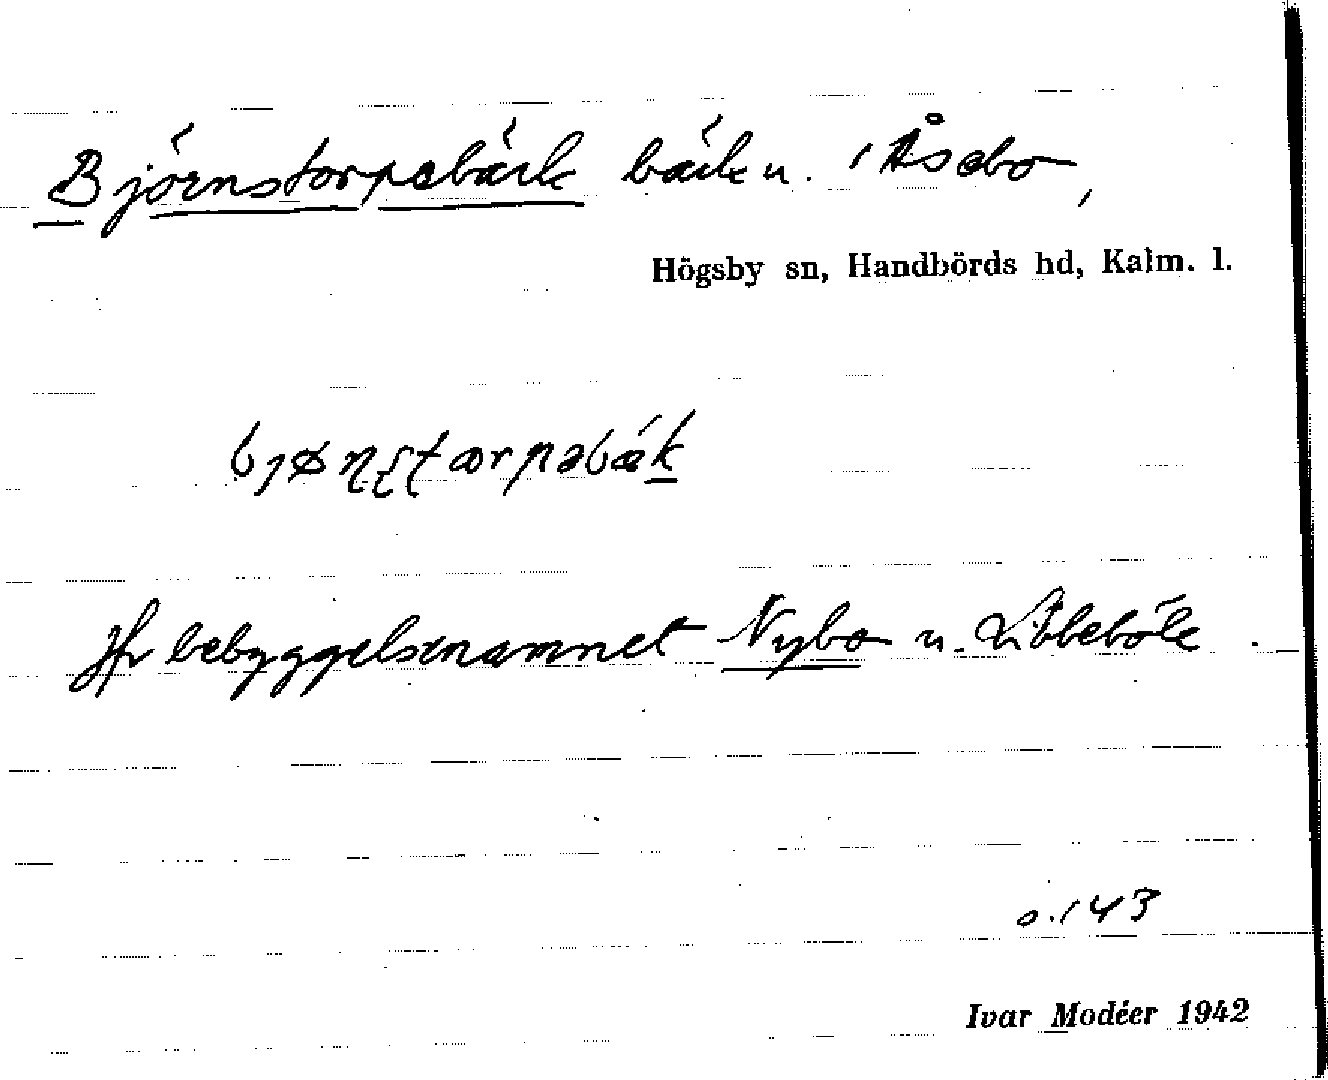 Björnstorpebäck bäck u. i Åsebo,
Högsby sn, Handbörds hd, Kalm. l.
Jfr bebyggelsenamnet Nybo u. Libbeböle.
o. 143
Ivar Modéer 1942